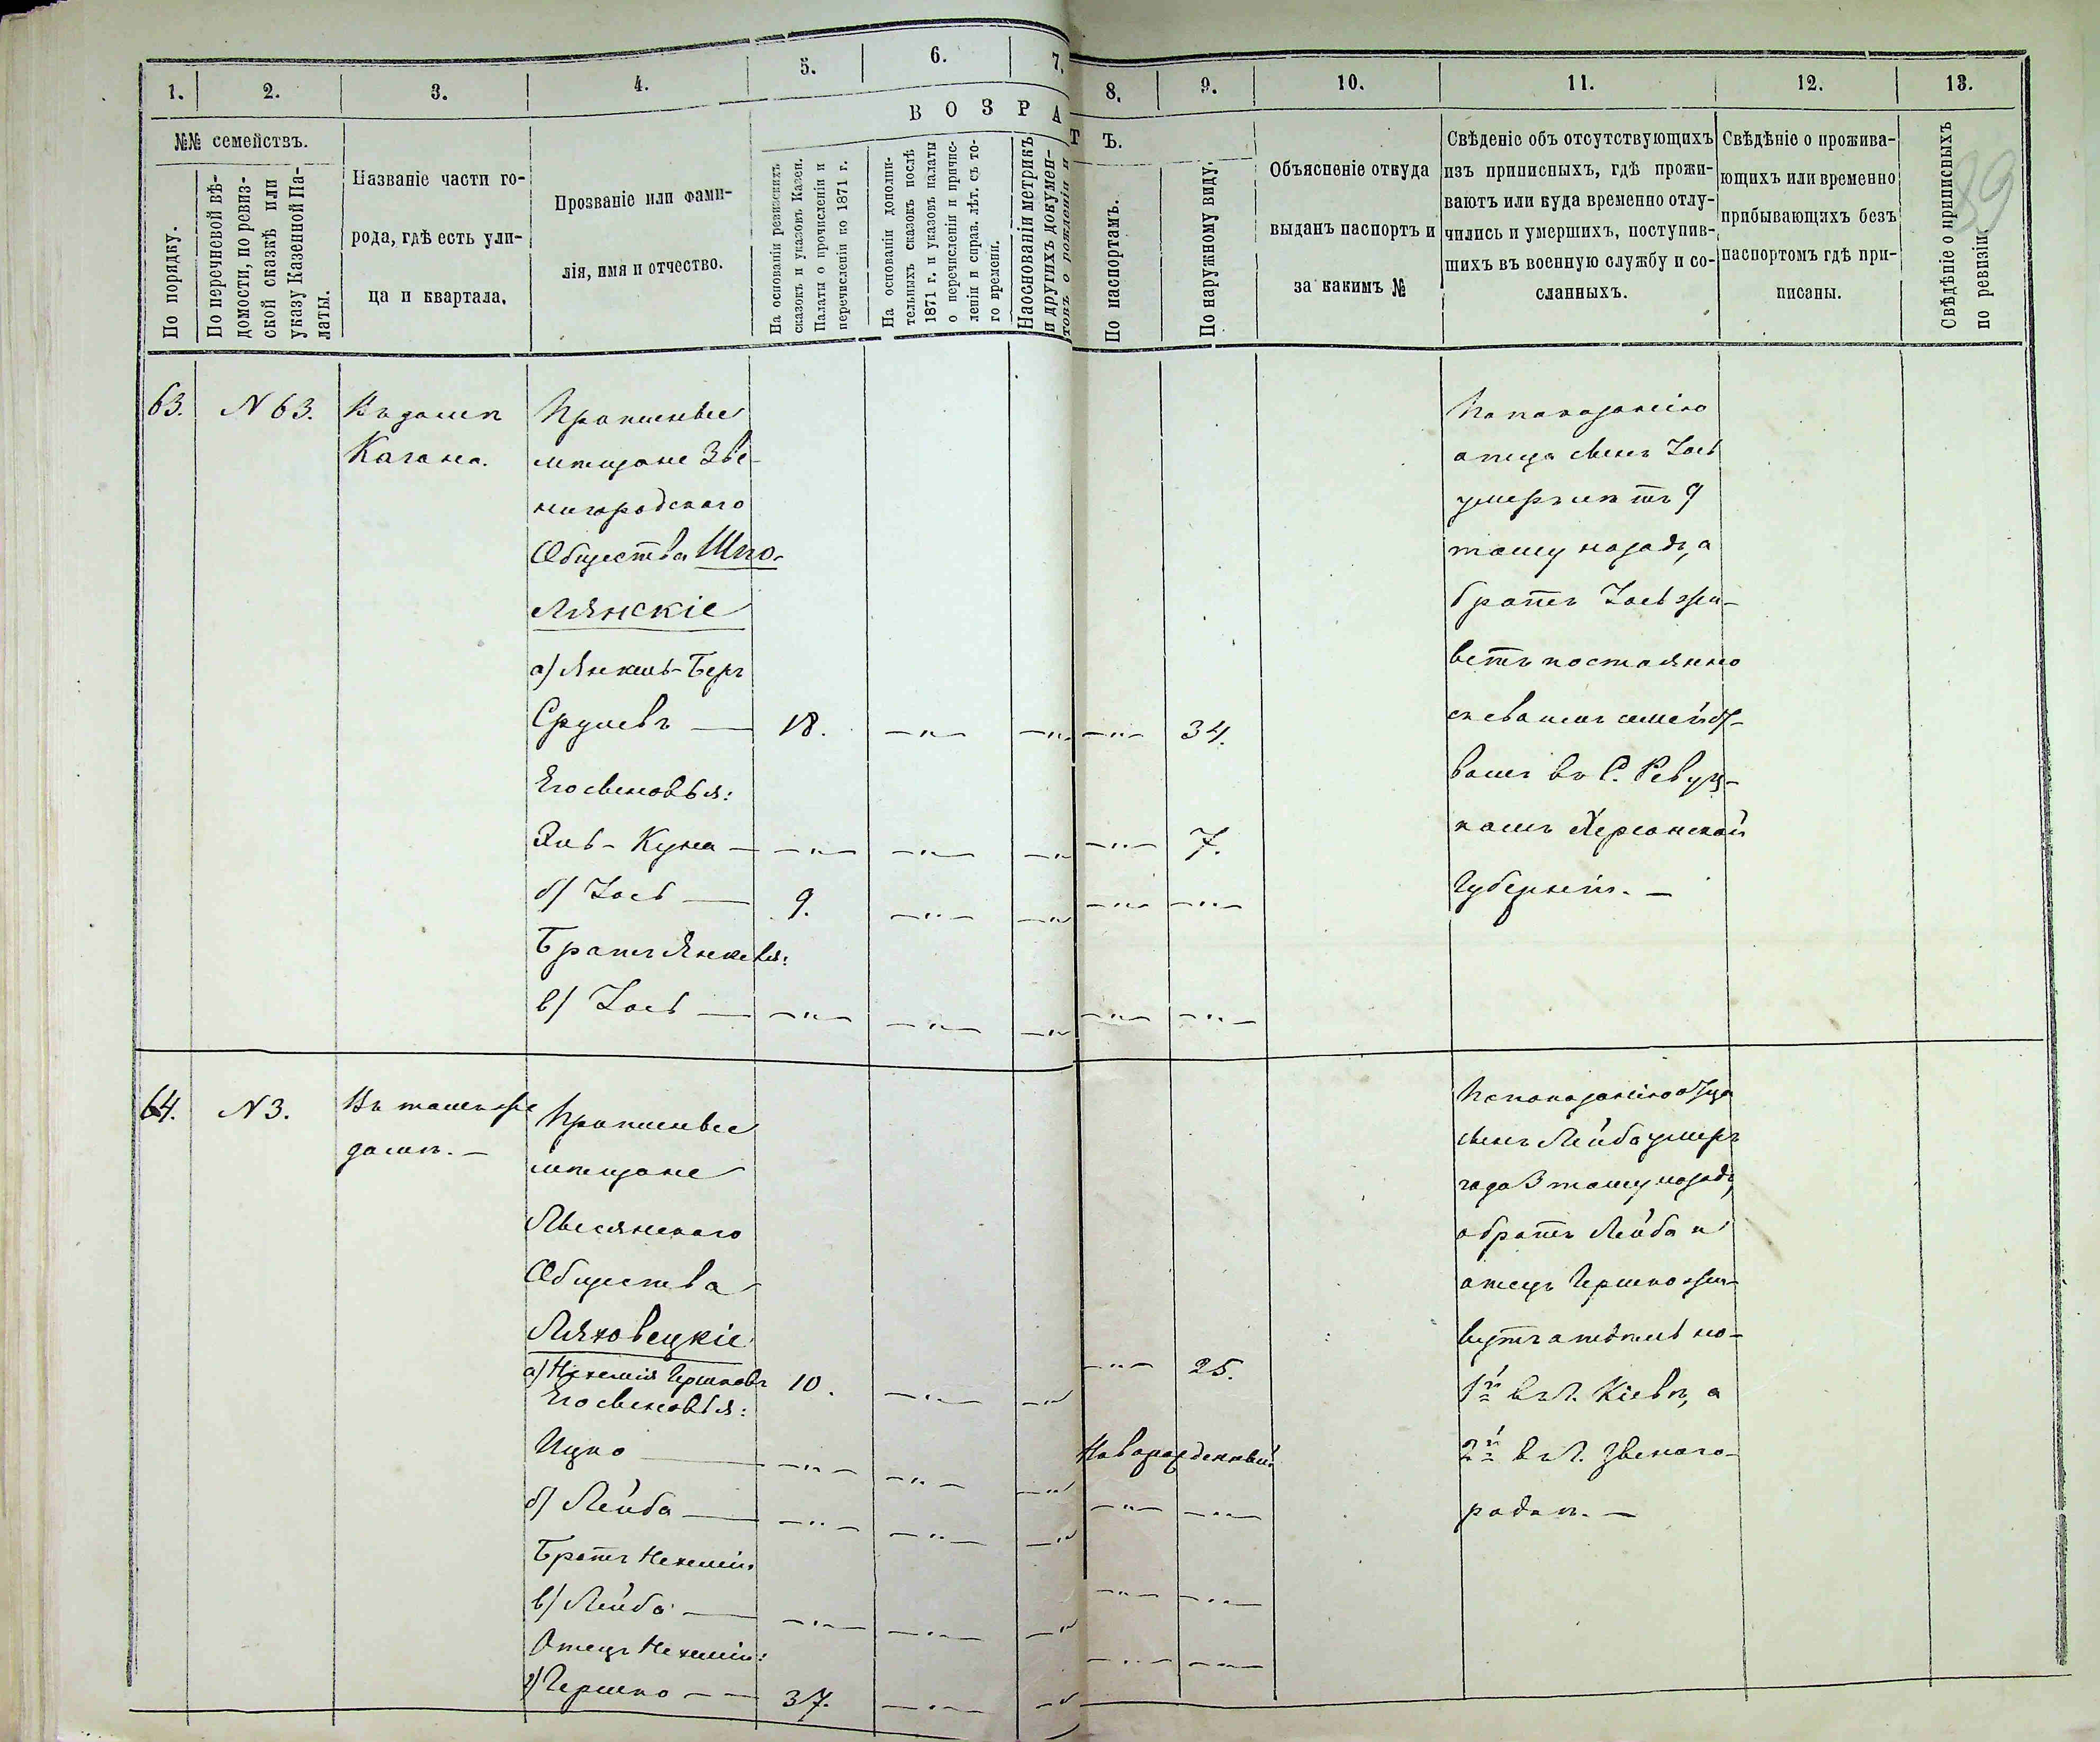 1.
2.
3.
4.
5.
6.
7.
8.
9.
10.
11.
12.
13.
89
№№ семействъ.
По порядку.
По перечневой вѣ-
домости, по ревиз-
ской сказкѣ или
указу Казенной Па-
латы.
Названіе части го-
рода, гдѣ есть ули-
ца и квартала.
Прозваніе или фами-
лія, имя и отчество.
ВОЗРАТЪ.
На основаніи ревизскихъ
сказокъ и указовъ Казен.
Палаты о прочисленіи и
перечисленіи ко 1871 г.
На основаніи дополни-
тельныхъ сказокъ послѣ
1871 г. и указовъ палаты
о перечисленіи и причис-
леніи и справ. лѣт. съ то-
го времени.
На основаніи метрикъ
и другихъ докумен-
товъ о рожденіи и
По паспортамъ.
По наружному виду.
Объясненіе откуда
выданъ паспортъ и
за какимъ №
Свѣденіе объ отсутствующихъ
изъ приписныхъ, гдѣ прожи-
ваютъ или куда временно отлу-
чились и умершихъ, поступив-
шихъ въ военную службу и со-
сланныхъ.
Свѣдѣніе о прожива-
ющихъ или временно
прибывающихъ безъ
паспортомъ гдѣ при-
писаны.
Свѣдѣніе о приписныхъ
по ревизіи.
63.
N 63.
Въ домѣ
Кагана.
Приписные
мѣщане Зве-
нигородскаго
Общества Шпо-
лянскіе
а) Янкель-Беръ
Сруловъ — 18. —"— —"— —"— 34.
Его сыновья:
Эль-Куна — —"— —"— —"— —"— 7.
б) Іось — 9. —"— —"— —"— —"—
Братъ Янкеля:
в) Іось — —"— —"— —"— —"— —"—
По показанію
отца сынъ Іось
умеръ лѣтъ 9
тому назадъ, а
братъ Іось жи-
ветъ постоянно
съ своимъ семей͠ст-
вомъ въ С. Ревуц-
комъ Херсонской
Губерніи. —
64.
N 3.
Въ томъ же
домѣ. —
Приписные
мѣщане
Лысянскаго
Общества
Ляховецкіе
а) Нехемія Гершковъ 10. —"— —"— —"— 25.
Его сыновья:
Ицко — —"— —"— —"— Новорожденный
б) Лейба — —"— —"— —"— —"— —"—
Братъ Нехеміи
в) Лейба — —"— —"— —"— —"— —"—
Отецъ Нехеміи:
г) Гершко — — 37. —"— —"— —"— —"—
По показанію отца
сынъ Лейба умеръ
года 3 тому назадъ,
а братъ Лейба и
отецъ Гершко жи-
вутъ
1й въ Г. Кіевѣ, а
2й въ Г. Звениго-
родкѣ. —